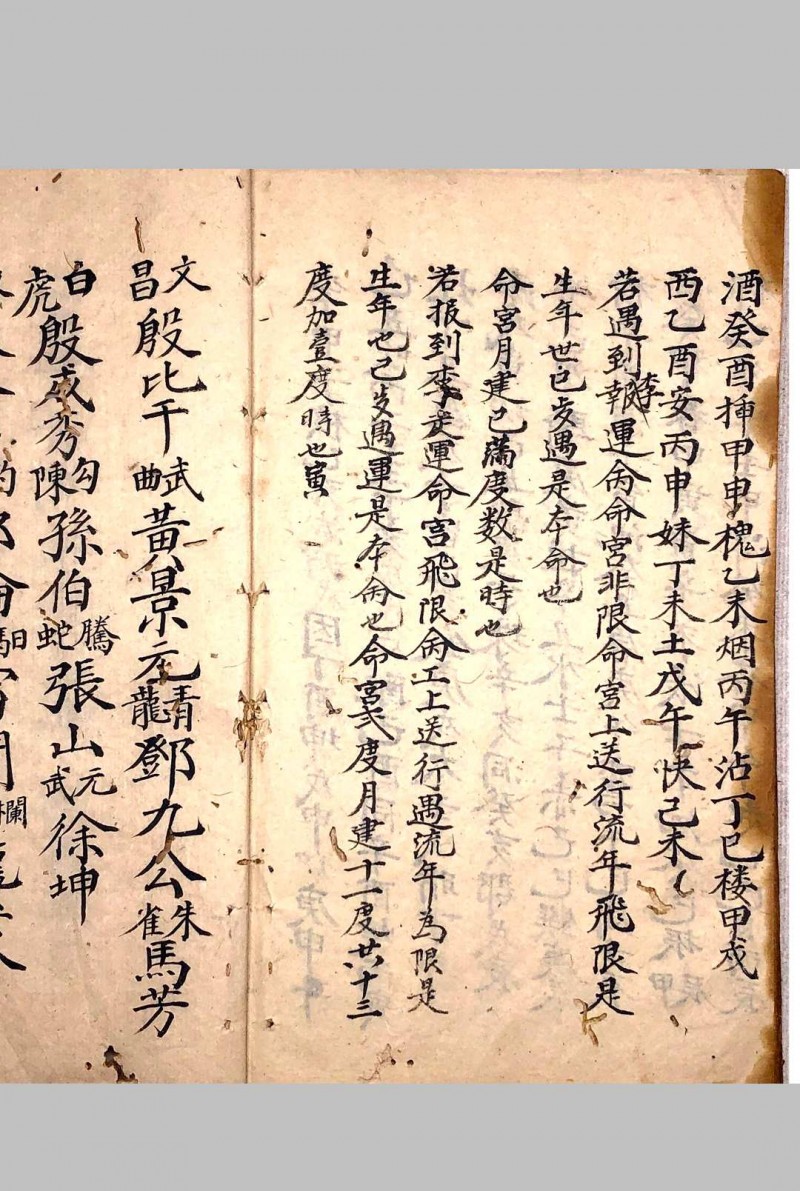 酒癸酉揷甲申槐乙未烟丙午沾丁巳楼甲戍
酉乙酉安丙申妹丁未土戊午快己未
若遇到李報運侖命宮非限命宮上送行流年飛限是
生年世已步遇是本命也
命宮月建已滿度数是時也
若报到李走運命宮飛限侖工上送行遇流年為限是
生年也己步遇運是本侖也命宮弍度月建十一度共十三
度加壹度時也寅
文昌殷比干武曲黃景元青龍鄧九公朱雀馬芳
白虎殷成秀勾陳孫伯騰蛇張山元武徐坤